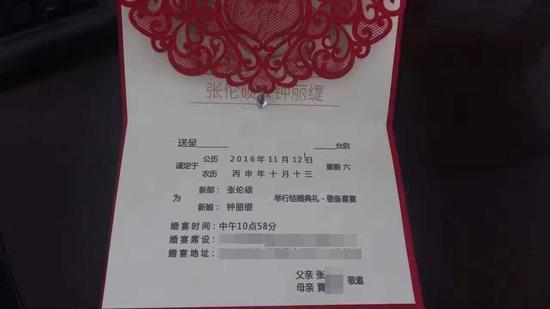 张伦硕 钟丽缇
送呈 台启
谨定于 公历 2016年11月12日 星期六
农历 丙申年十月十三
为 新郎：张伦硕 举行结婚典礼·敬备喜宴
新娘：钟丽缇
婚宴时间：中午10点58分
婚宴席设：
婚宴地址：
父亲 张
母亲 賈 敬邀